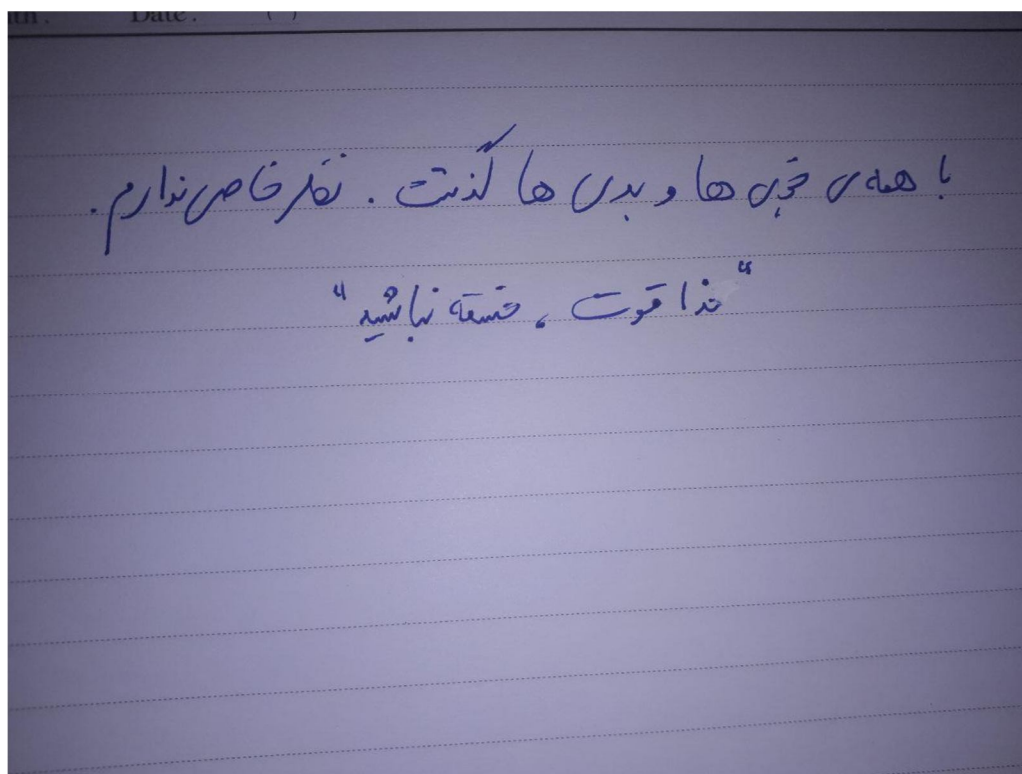 Date: ( )
با همه ی خوبی ها و بدی ها گذشت. نظر خاصی ندارم.
"خدا قوت، خسته نباشید"